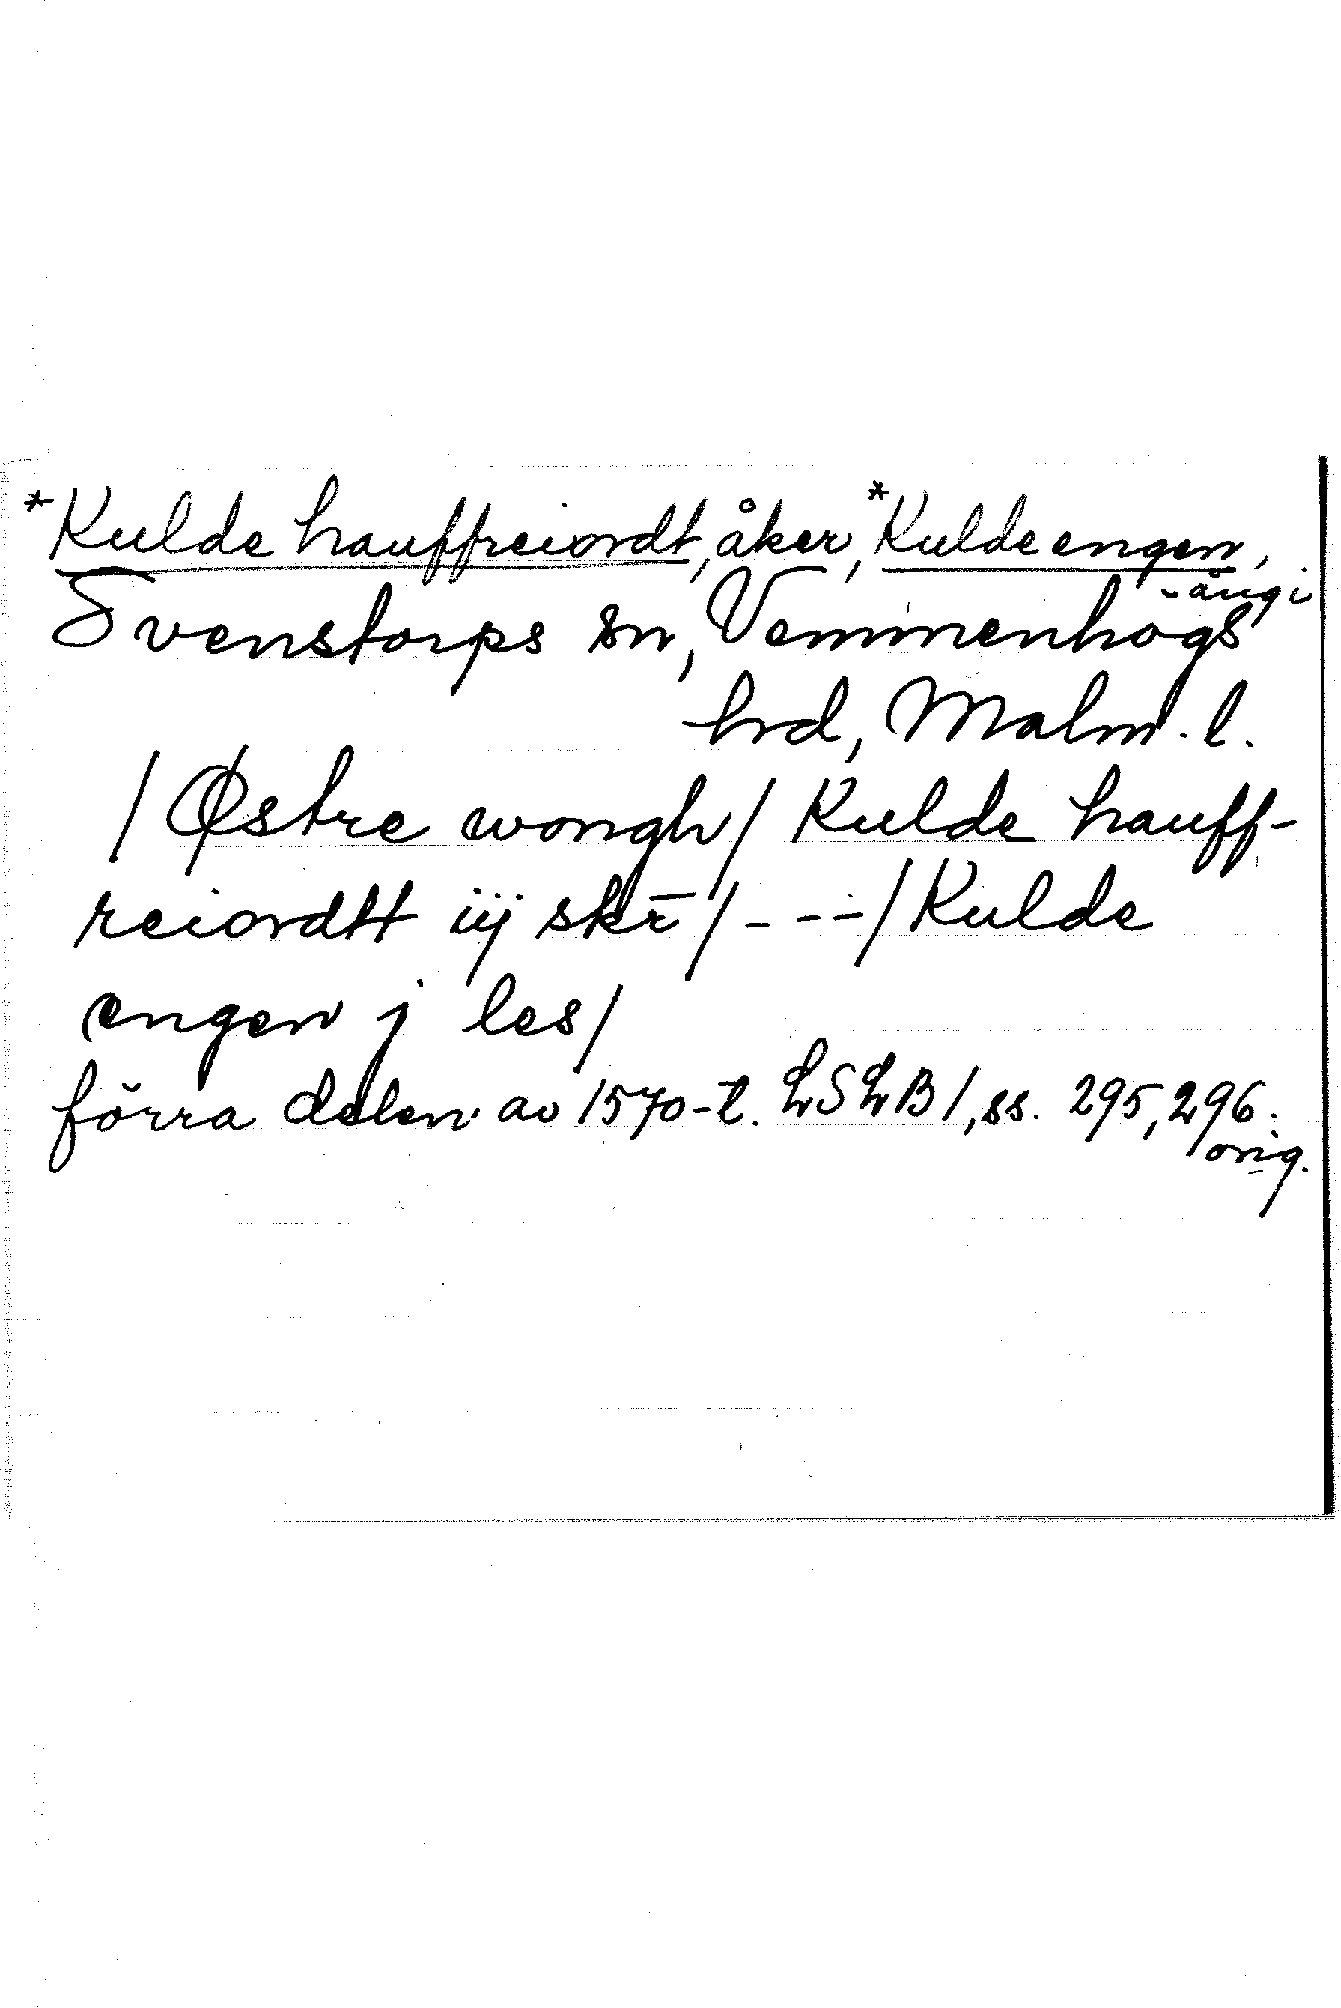 *Kulde hauffreiordt, åker, *Kulde engen,
- äng i
Svenstorps sn, Vemmenhögs
hrd, Malm. l.
/Østre wongh/ Kulde hauff-
reiordtt iij skr̄ /- --/ Kulde
engen j les/
förra delen av 1570-t. LSLB 1, ss. 295, 296.
orig.